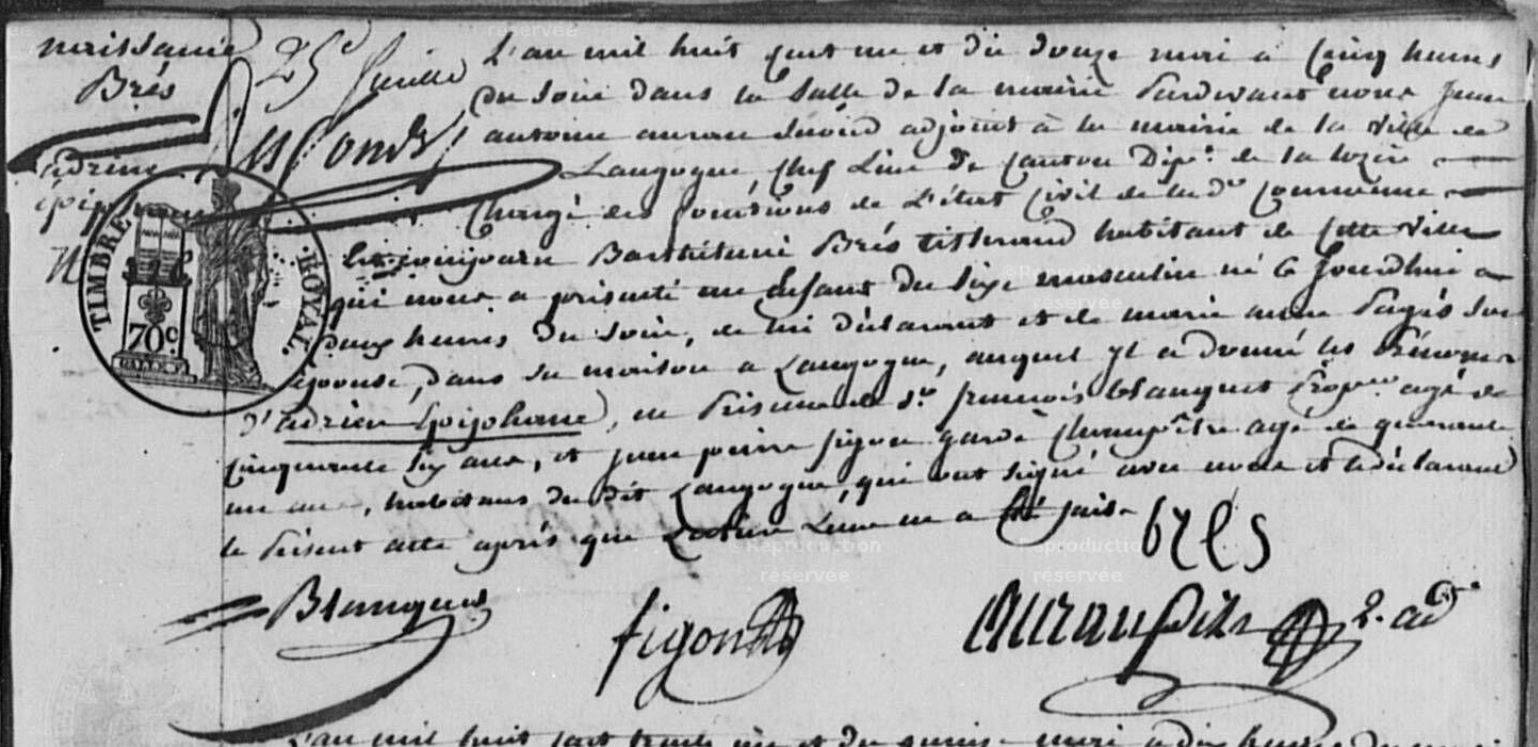 naissance
Brés
adrien
épiphane
25e feuille
TIMBRE ROYAL.
70c.
L'an mil huit cent et du douze mai à cinq heures
du soir dans la Salle de la mairie Pardevant nous Jean
antoine auran adjoint à la mairie de la ville de
Langogne, Chef Lieu de Canton Dépt. de la lozère
Chargé des fonctions de L'état Civil de la de Commune
est comparu Barthélemi Brés tisserand habitant de cette ville
qui nous a présenté un Enfant du Sexe masculin né ce Jourdhui a
deux heures du Soir, de lui déclarant et de marie anne Pagés son
épouse, dans sa maison a Langogne, auquel yl a donné les Prénoms
d'adrien Epiphane, en Présence de Sr. françois blanquet Propre. agé de
cinquante six ans, et jean pierre figon garde Champêtre agé de quarante
un ans, habitans du dit Langogne, qui ont signé avec nous et le déclarant
le Présent acte après que Lecture Leur en a été faite
bres
Blanquet
figon
Auran
2. adt
L'an mil huit cent trente un et du quinze mai a dix heures du